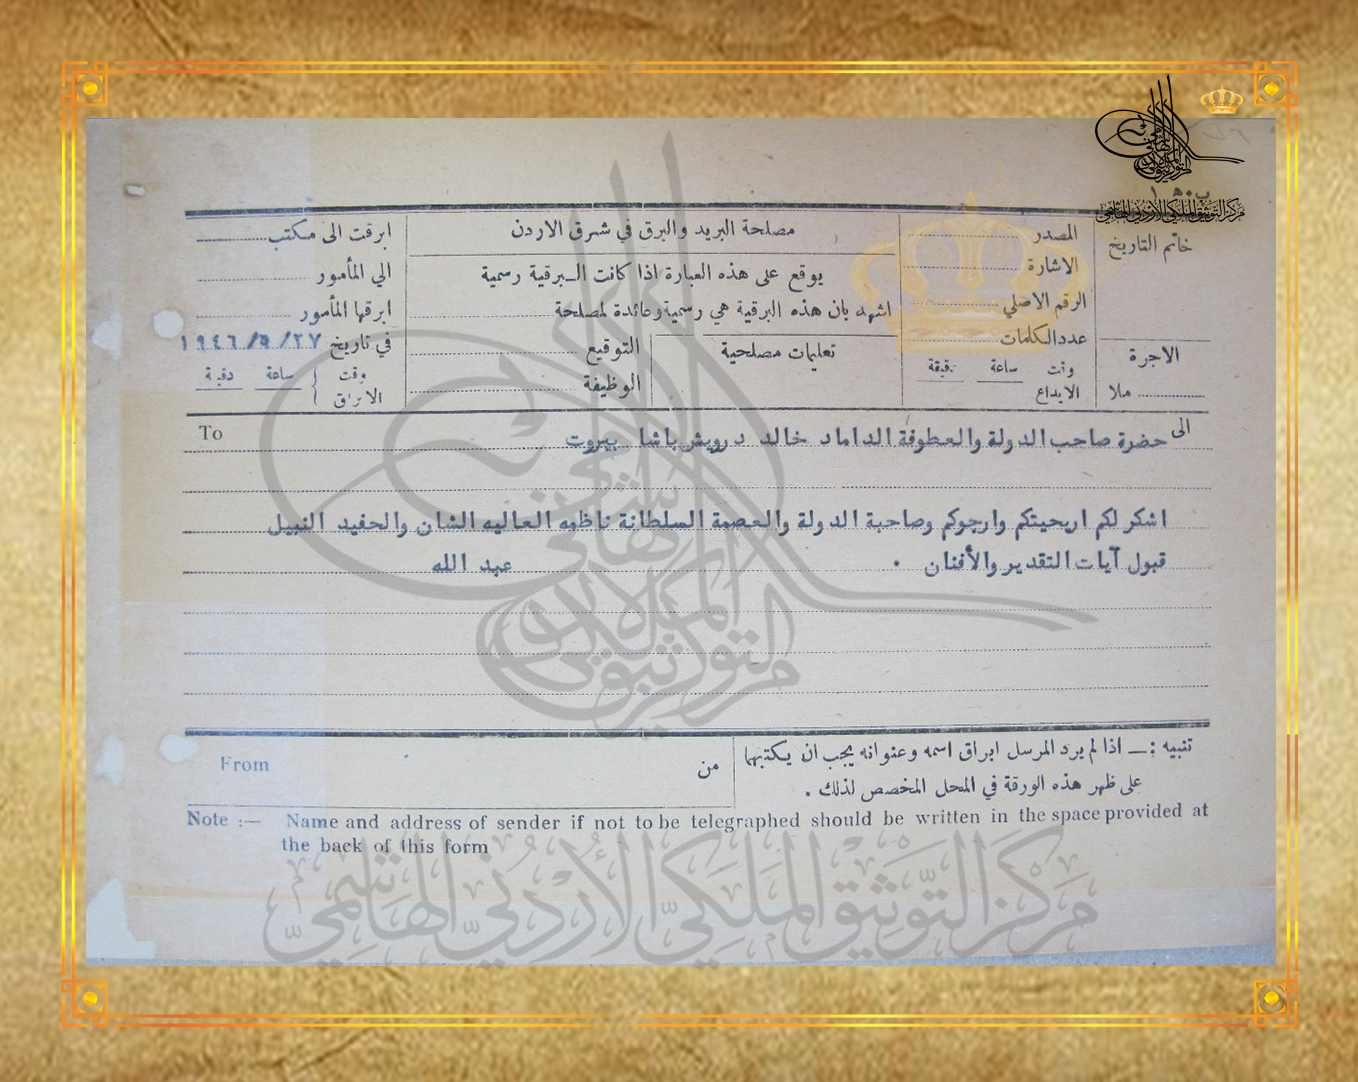 مركز التوثيق الملكي الأردني الهاشمي
خاتم التاريخ
الاجرة
ملا
المصدر
الاشارة
الرقم الاصلي
عدد الكلمات
وقت ساعة دقيقة
الايداع
مصلحة البريد والبرق في شرق الاردن
يوقع على هذه العبارة اذا كانت البرقية رسمية
اشهد بان هذه البرقية هي رسمية وعائدة لمصلحة
تعليمات مصلحية
التوقيع
الوظيفة
ابرقت الى مكتب
الي المأمور
ابرقها المأمور
في تاريخ ١٩٤٦/٥/٢٧
وقت ساعة دقيقة
الابراق
الى حضرة صاحب الدولة والعطوفة الداماد خالد درويش باشا بيروت To
اشكر لكم اريحيتكم وارجوكم وصاحبة الدولة والعصمة السلطانة ناظمه العاليه الشان والحفيد النبيل
قبول آيات التقدير والأفنان . عبد الله
تنبيه :— اذا لم يرد المرسل ابراق اسمه وعنوانه يجب ان يكتبهما
على ظهر هذه الورقة في المحل المخصص لذلك .
من From
Note :— Name and address of sender if not to be telegraphed should be written in the space provided at
the back of this form
مركز التوثيق الملكي الأردني الهاشمي